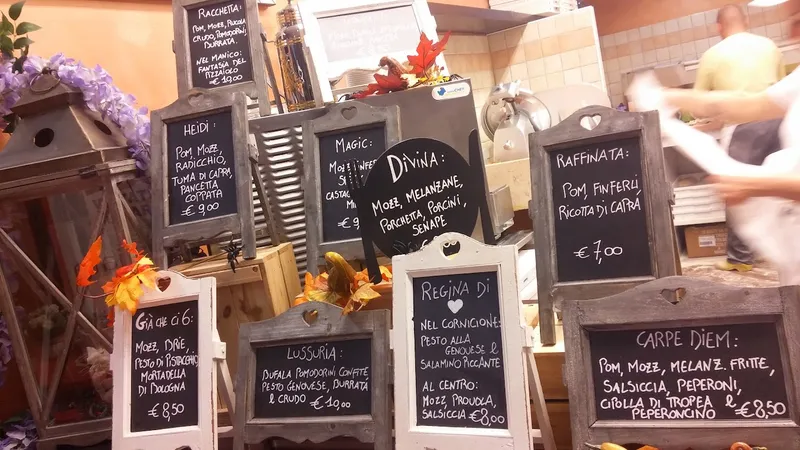 RACCHETTA:
POM, MOZZ, RUCOLA
CRUDO, POMODORINI,
BURRATA.
NEL MANICO:
FANTASIA DEL
PIZZAIOLO
€ 10,00
HEIDI:
POM, MOZZ,
RADICCHIO,
TUMA DI CAPRA,
PANCETTA
COPPATA
€ 9,00
MAGIC:
€ 9,
DIVINA:
MOZZ, MELANZANE,
PORCHETTA, PORCINI,
SENAPE
RAFFINATA:
POM, FINFERLI,
RICOTTA DI CAPRA
€ 7,00
GIÀ CHE CI 6:
MOZZ, BRIE,
PESTO DI PISTACCHIO,
MORTADELLA
DI BOLOGNA
€ 8,50
LUSSURIA:
BUFALA POMODORINI CONFITÉ
PESTO GENOVESE, BURRATA
& CRUDO €10,00
REGINA DI
NEL CORNICIONE:
PESTO ALLA
GENOVESE &
SALAMINO PICCANTE
AL CENTRO:
MOZZ, PROVOLA,
SALSICCIA €8,00
CARPE DIEM:
POM, MOZZ, MELANZ. FRITTE,
SALSICCIA, PEPERONI,
CIPOLLA DI TROPEA &
PEPERONCINO €8,50